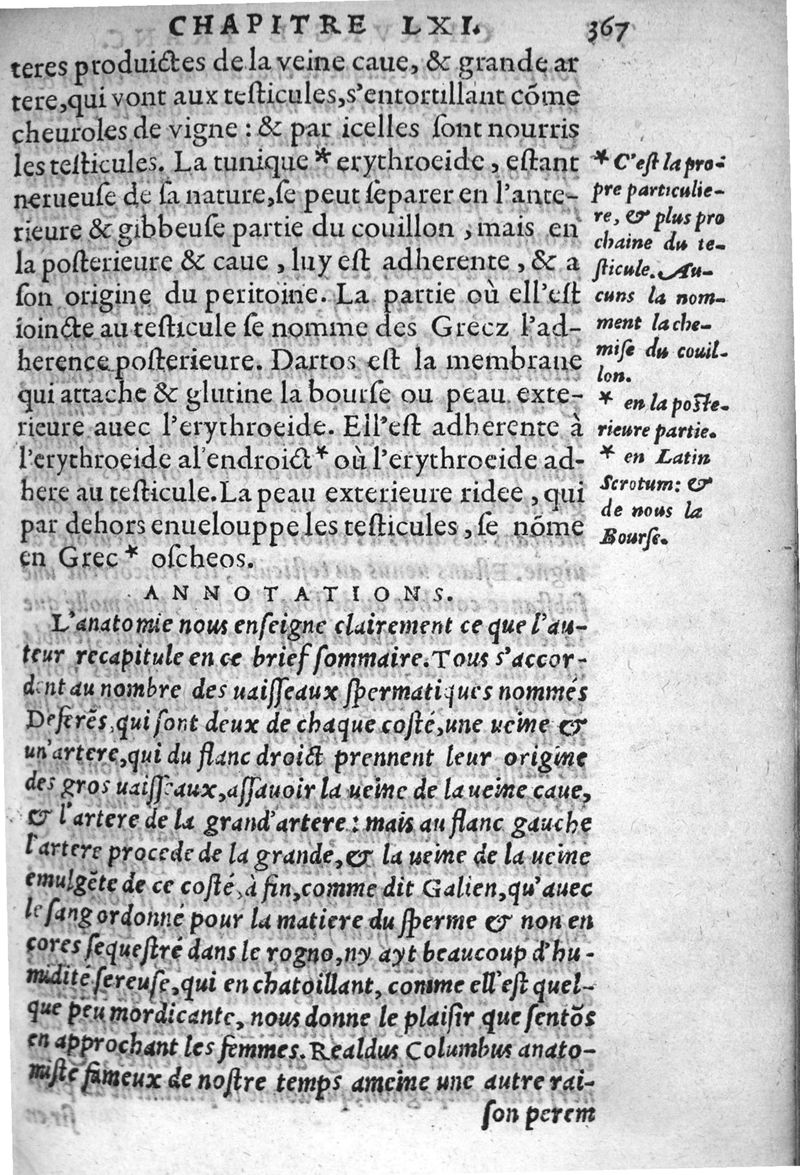 CHAPITRE LXI. 367
teres produictes de la veine caue, & grande ar
tere,qui vont aux testicules,s'entortillant cõme
cheuroles de vigne : & par icelles sont nourris
les testicules. La tunique * erythroeide , estant
nerueuse de sa nature,se peut separer en l'ante-
rieure & gibbeuse partie du couillon , mais en
la posterieure & caue , luy est adherente , & a
son origine du peritoine. La partie où ell'est
ioincte au testicule se nomme des Grecz l'ad-
herence posterieure. Dartos est la membrane
qui attache & glutine la bourse ou peau exte-
rieure auec l'erythroeide. Ell'est adherente à
l'erythroeide al'endroict * où l'erythroeide ad-
here au testicule. La peau exterieure ridee , qui
par dehors enuelouppe les testicules, se nõme
en Grec * oscheos.
* C'est la pro-
pre particulie-
re, & plus pro
chaine du te-
sticule. Au-
cuns la nom-
ment la che-
mise du couil-
lon.
* en la poste-
rieure partie.
* en Latin
Scrotum: &
de nous la
Bourse.
ANNOTATIONS.
L'anatomie nous enseigne clairement ce que l'au-
teur recapitule en ce brief sommaire. Tous s'accor-
dent au nombre des uaisseaux spermatiques nommés
Deferẽs, qui sont deux de chaque costé, une ueine &
un'artere, qui du flanc droict prennent leur origine
des gros uaisseaux, assauoir la ueine de la ueine caue,
& l'artere de la grand'artere : mais au flanc gauche
l'artere procede de la grande, & la ueine de la ueine
emulgẽte de ce costé, à fin, comme dit Galien, qu'auec
le sang ordonné pour la matiere du sperme & non en
cores sequestré dans le rogno, ny ayt beaucoup d'hu-
midite sereuse, qui en chatoillant, comme ell'est quel-
que peu mordicante, nous donne le plaisir que sentõs
en approchant les femmes. Realdus Columbus anato-
miste fameux de nostre temps ameine une autre rai-
son perem